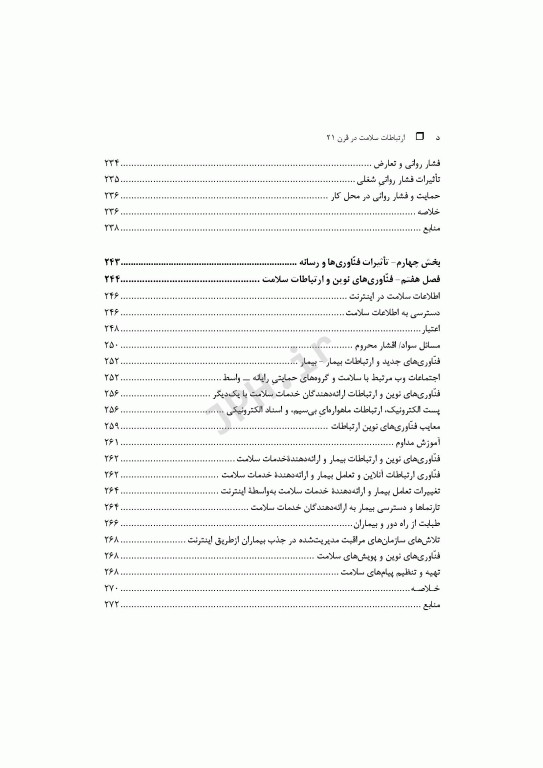 د ❐ ارتباطات سلامت در قرن ۲۱
فشار روانی و تعارض ........ ۲۳۴
تأثیرات فشار روانی شغلی ........ ۲۳۵
حمایت و فشار روانی در محل کار ........ ۲۳۶
خلاصه ........ ۲۳۶
منابع ........ ۲۳۸
بخش چهارم- تأثیرات فنّاوری‌ها و رسانه ........ ۲۴۳
فصل هفتم- فنّاوری‌های نوین و ارتباطات سلامت ........ ۲۴۴
اطلاعات سلامت در اینترنت ........ ۲۴۶
دسترسی به اطلاعات سلامت ........ ۲۴۶
اعتبار ........ ۲۴۸
مسائل سواد/ اقشار محروم ........ ۲۵۰
فنّاوری‌های جدید و ارتباطات بیمار – بیمار ........ ۲۵۲
اجتماعات وب مرتبط با سلامت و گروه‌های حمایتی رایانه – واسط ........ ۲۵۲
فنّاوری‌های نوین و ارتباطات ارائه‌دهندگان خدمات سلامت با یک‌دیگر ........ ۲۵۶
پست الکترونیک، ارتباطات ماهواره‌ای بی‌سیم، و اسناد الکترونیکی ........ ۲۵۶
معایب فنّاوری‌های نوین ارتباطات ........ ۲۵۹
آموزش مداوم ........ ۲۶۱
فنّاوری‌های نوین و ارتباطات بیمار و ارائه‌دهندۀخدمات سلامت ........ ۲۶۲
فنّاوری ارتباطات آنلاین و تعامل بیمار و ارائه‌دهندۀ خدمات سلامت ........ ۲۶۲
تغییرات تعامل بیمار و ارائه‌دهندۀ خدمات سلامت به‌واسطۀ اینترنت ........ ۲۶۴
تارنماها و دسترسی بیمار به ارائه‌دهندگان خدمات سلامت ........ ۲۶۴
طبابت از راه دور و بیماران ........ ۲۶۶
تلاش‌های سازمان‌های مراقبت مدیریت‌شده در جذب بیماران ازطریق اینترنت ........ ۲۶۸
فنّاوری‌های نوین و پویش‌های سلامت ........ ۲۶۸
تهیه و تنظیم پیام‌های سلامت ........ ۲۶۸
خـلاصـه ........ ۲۷۰
منابع ........ ۲۷۲